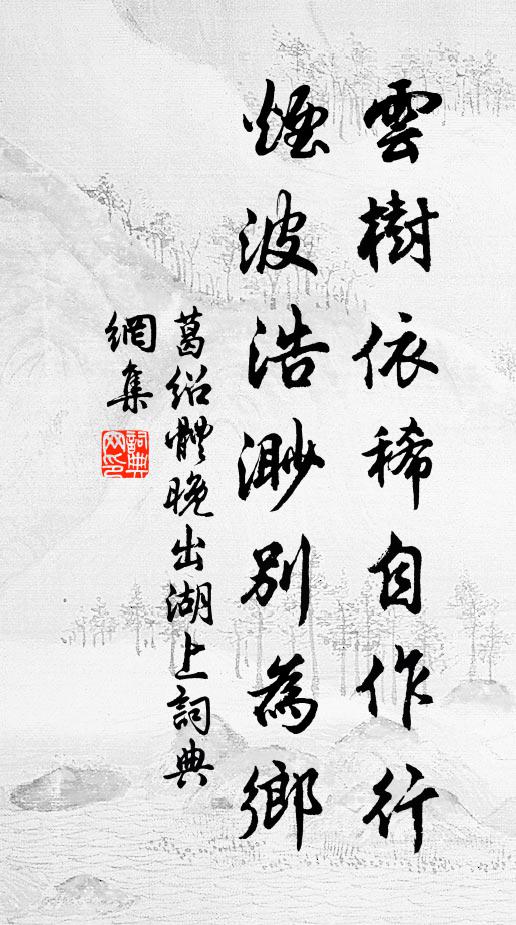 雲樹依稀自作行
煙波浩渺別為鄉
葛紹體晚出湖上詞典
網集
詞典
网印